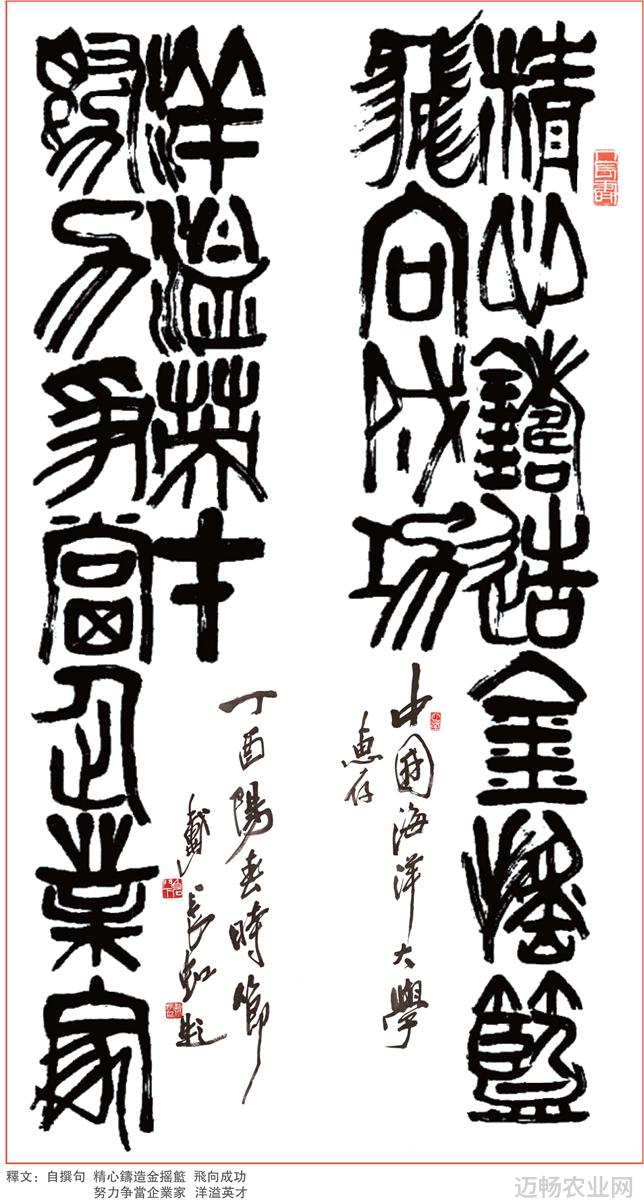 精心鑄造金搖籃
飛向成功
中國海洋大學
惠存
努力爭當企業家
洋溢英才
丁酉陽春時節
戴長虹題
釋文：自撰句 精心鑄造金摇籃 飛向成功
努力争當企業家 洋溢英才
迈畅农业网